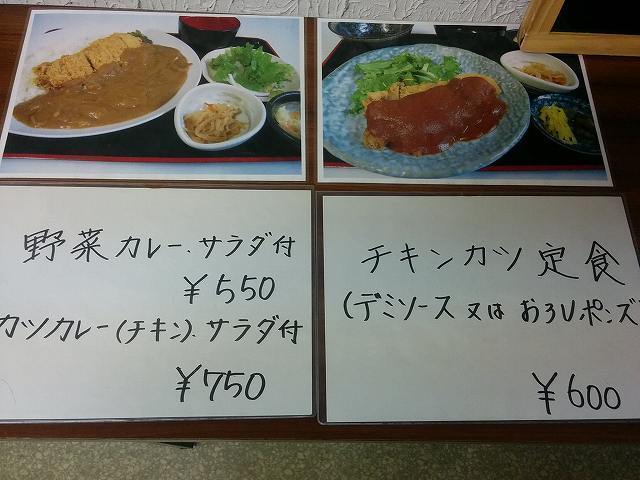 野菜カレー、サラダ付
¥550
カツカレー(チキン)、サラダ付
¥750
チキンカツ定食
(デミソース又はおろしポンズ
¥600